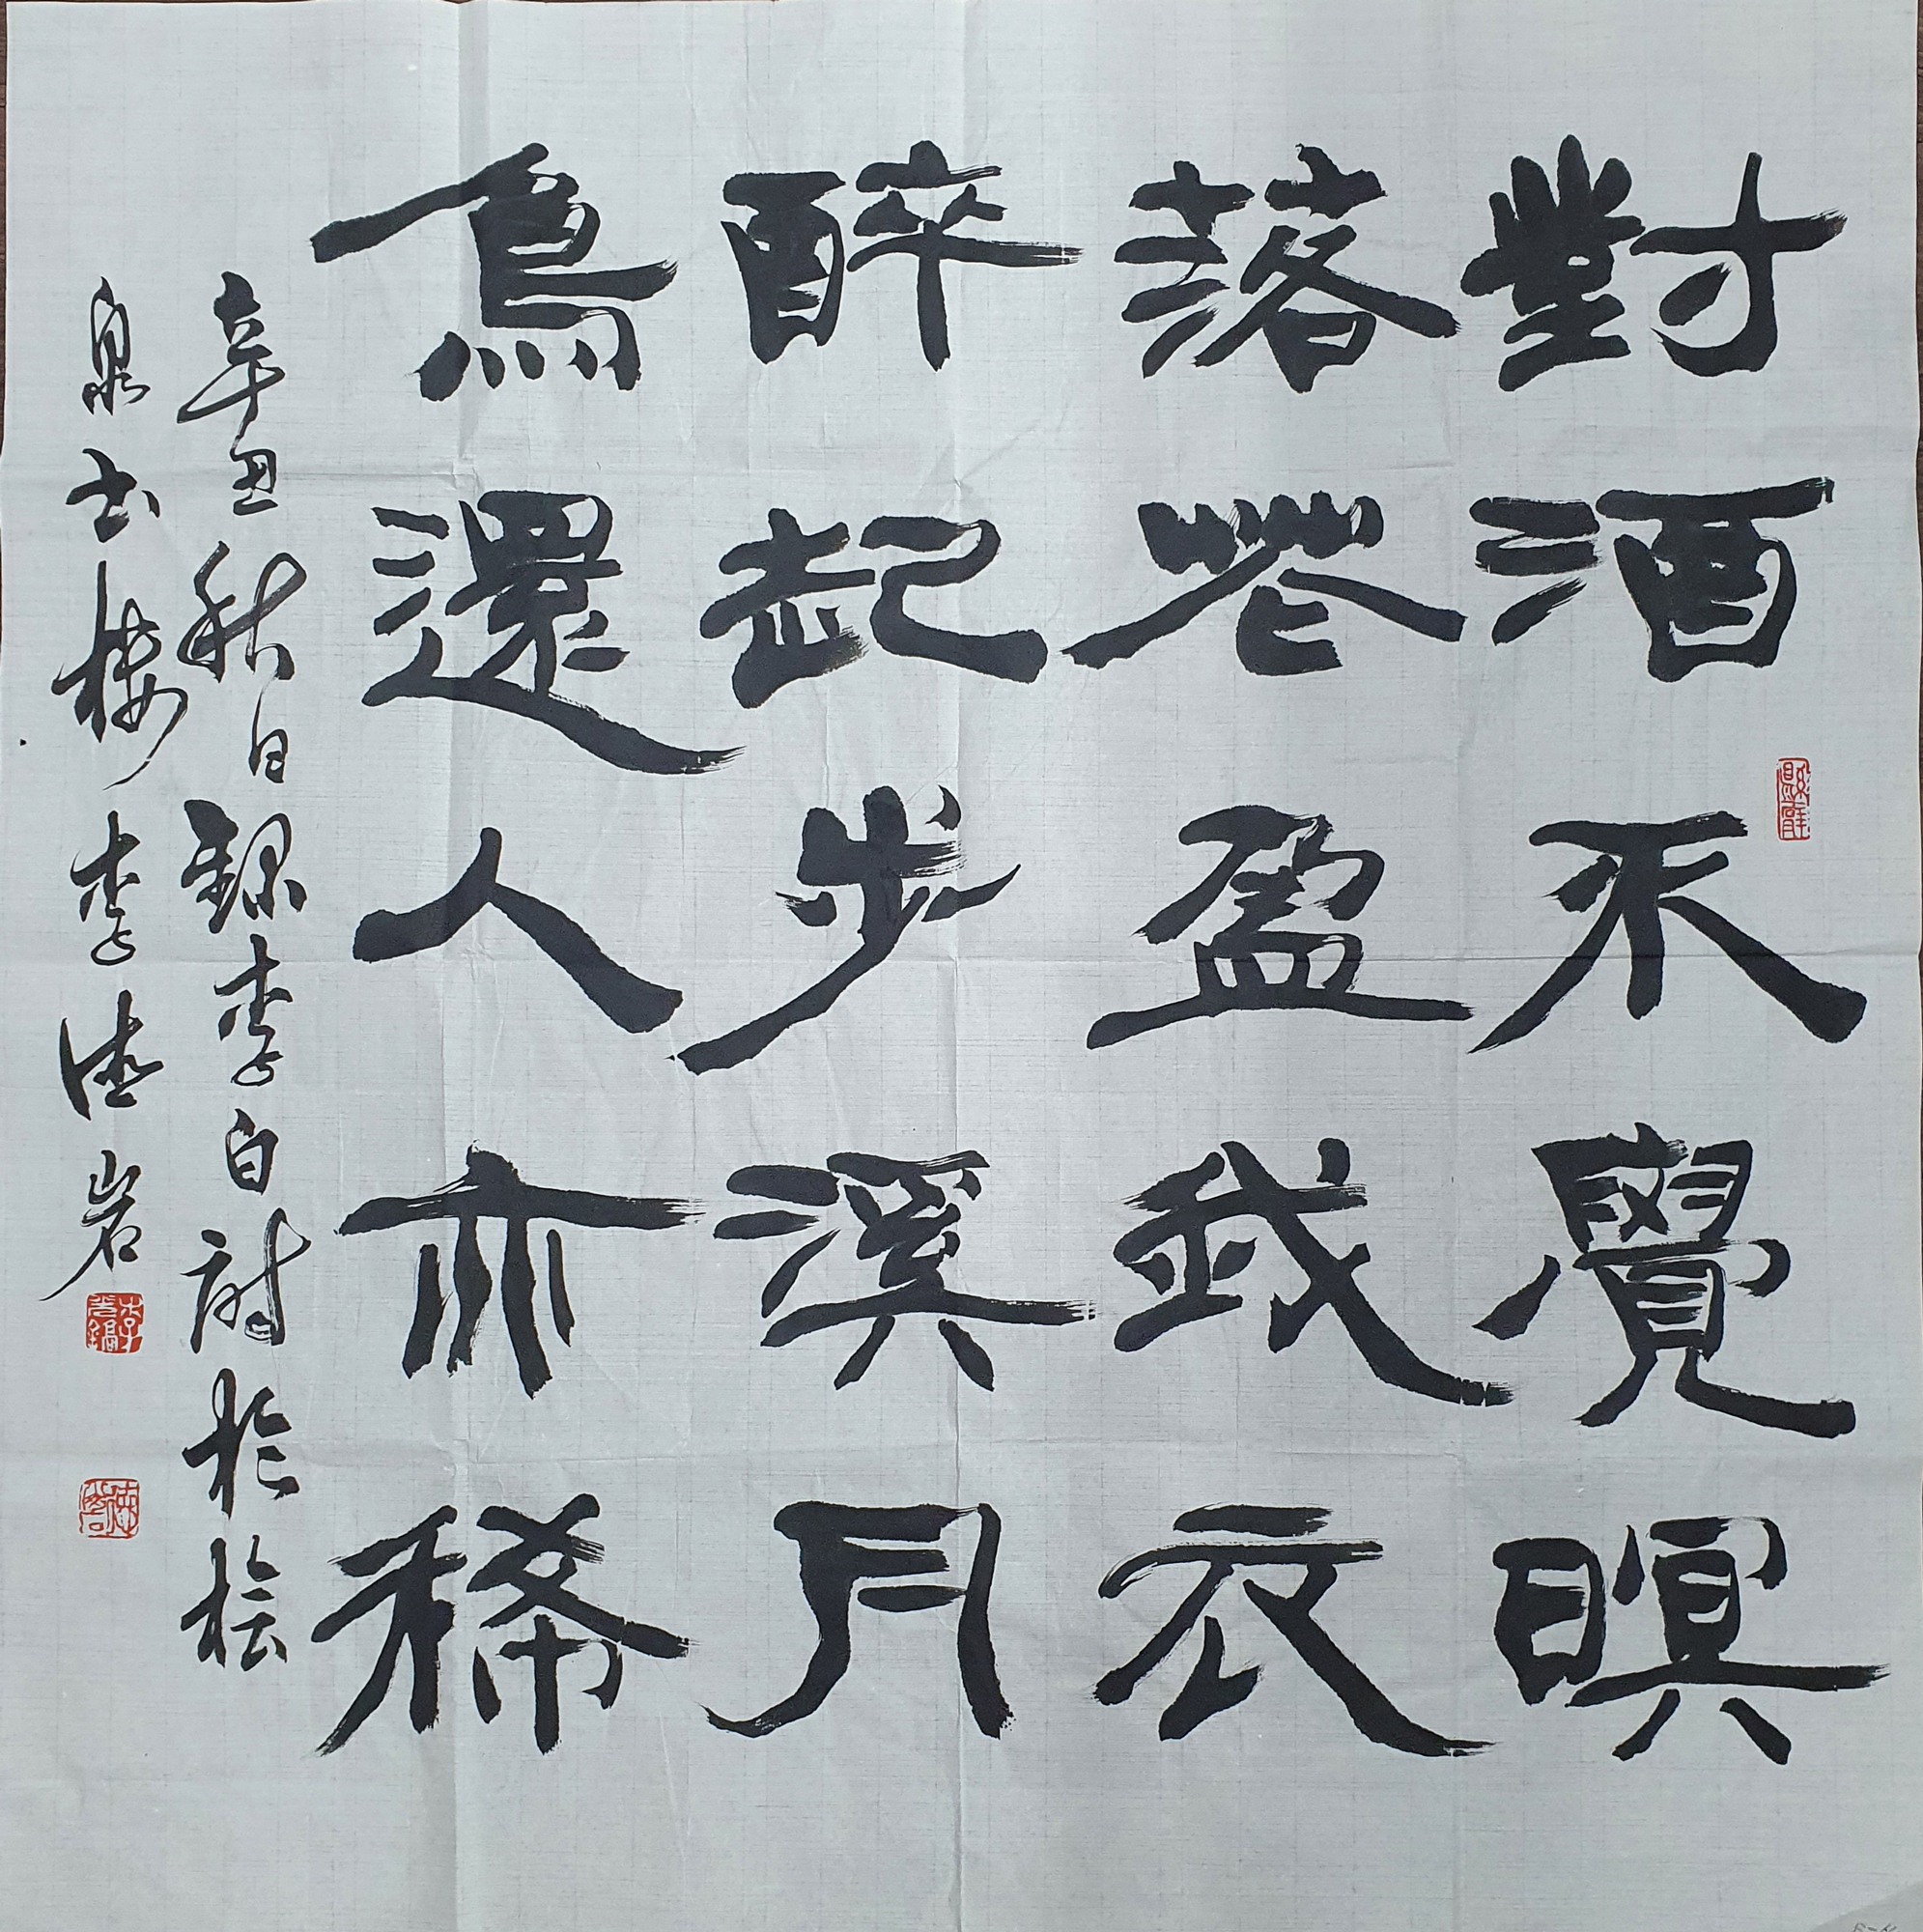 對酒不覺暝
落花盈我衣
醉起步溪月
鳥還人亦稀
辛丑秋日録李白詩於桧
泉书楼李德岩